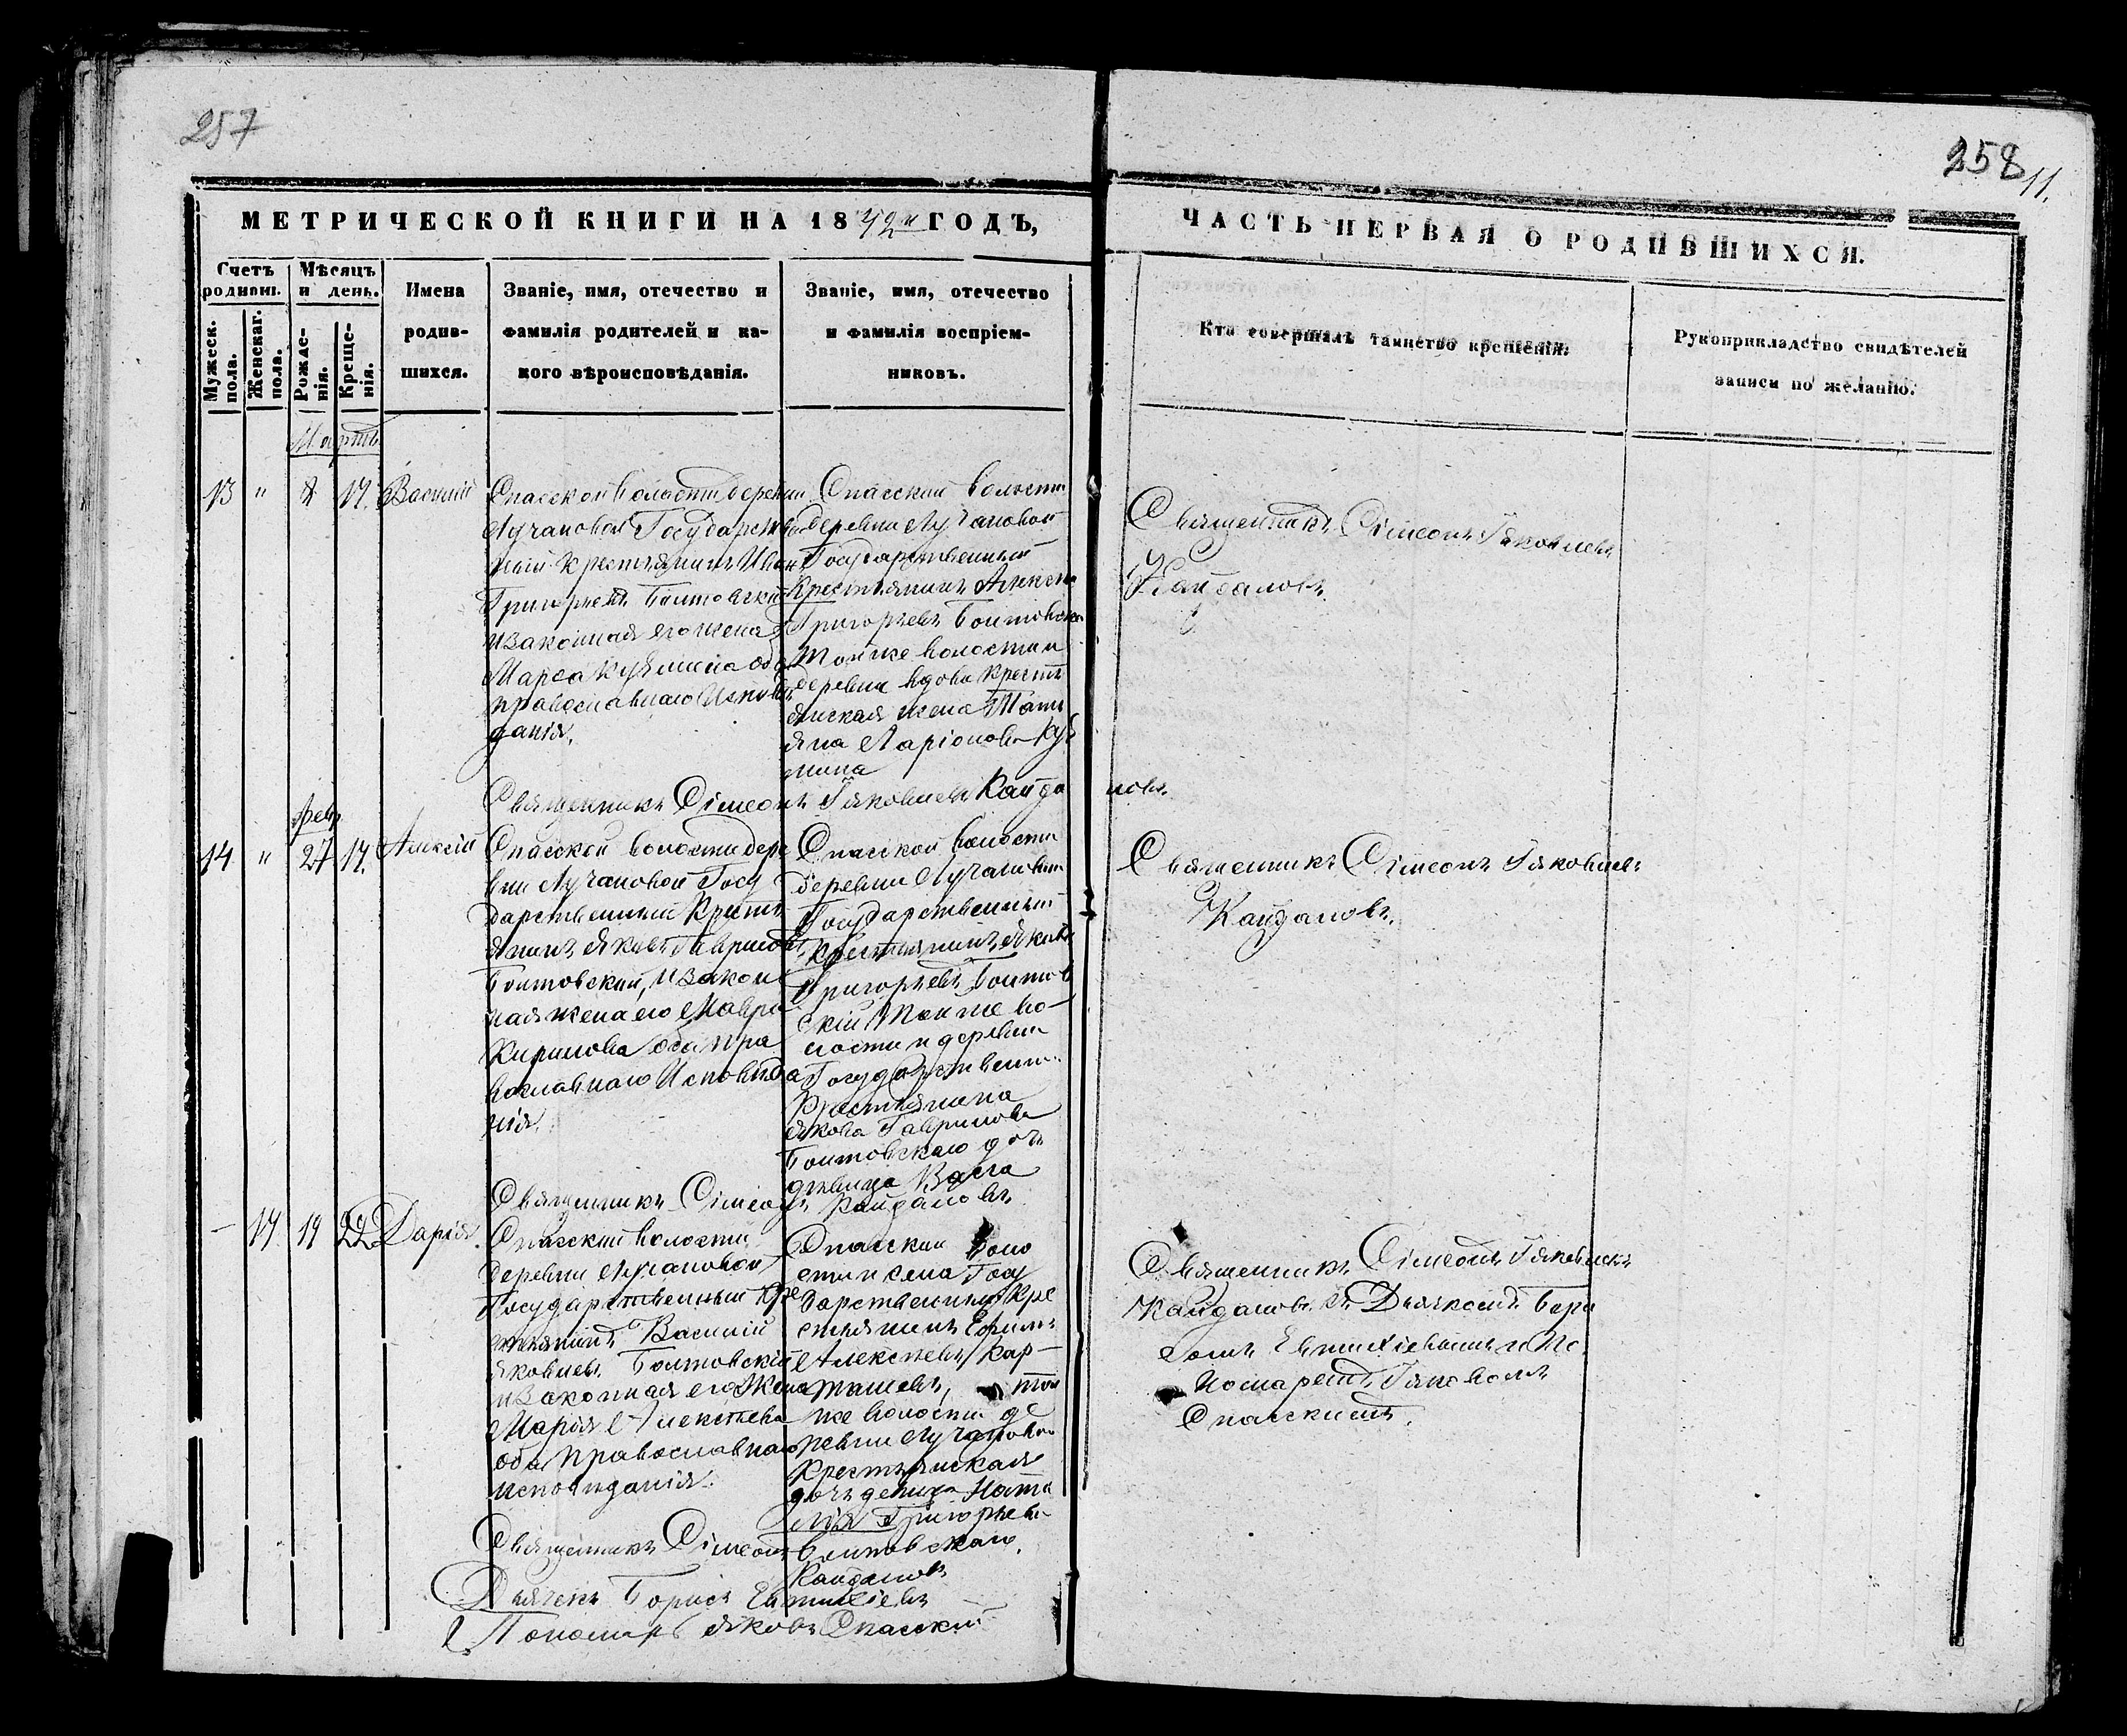 257
258
11.
МЕТРИЧЕСКОЙ КНИГИ НА 1842й ГОДЪ,
ЧАСТЬ ПЕРВАЯ О РОДИВШИХСЯ.
Счетъ родивш.
Мужеск. пола.
Женскаг. пола.
Мѣсяцъ и день.
Рожденія.
Крещенія.
Имена
родив-
шихся.
Званіе, имя, отечество и
фамилія родителей и ка-
кого вѣроисповѣданія.
Званіе, имя, отечество
и фамилія воспріем-
никовъ.
Кто совершалъ таинство крещенія.
Рукоприкладство свидѣтелей
записи по желанію.
Мартъ
13 " 8 17. Василій
Спасской волости деревни
Лучановой Государствен
ный крестьянинъ Иванъ
Григорьевъ Болтовскій
и законная его жена
Марѳа Кузмина оба
православнаго Исповѣ
данія.
Спасской волости
деревни Лучановой
Государственный
Крестьянинъ Алексѣ
Григорьевъ Болтовскі
Той же волости и
деревни вдова крестъ
янская жена Тать
яна Ларіонова Куз
мина
Священникъ Сімеонъ Іяковлевъ
Кайдаловъ.
Священникъ Сімеонъ Іяковлевъ Кайда ловъ.
февр
14 " 27 17. Алексій
Спасской волости дере
вни Лучановой Госу
дарственный Кресть
янинъ Яковъ Гавриловъ
Болтовскій, и закон
ная жена его Мавра
Кирилова оба пра
вославнаго Исповѣда
нія.
Спасской волости
деревни Лучановой
Государственный
Крестьянинъ Яковъ
Григорьевъ Болтов
скій Той же во-
лости и деревни
Государственн
Крестьянина
Якова Гаврилова
Болтовскаго дочь
дѣвица Васса
Священникъ Сімеонъ Іяковлевъ
Кайдаловъ.
Священникъ Сімеонъ Кайдаловъ
— 17 19 22 Дарія.
Спасской волости
деревни Лучановой
Государственный Кре
стьянинъ Василій
Яковлевъ Болтовскій
и законная его Жена
Марія Алексѣева
оба православнаго
исповѣданія.
Спасской воло
сти села Госу
дарственный Кре
стьянинъ Ефимъ
Алексѣевъ Кар-
ташевъ, той
же волости де
ревни Лучановой
Крестьянская
дочь девица Ната
лія Григорьева
Болтовскаго.
Священникъ Сімеонъ Іяковлевъ
Кайдаловъ съ Дьячкомъ Бори
сомъ Евтихіевымъ и По
номаремъ Іяковомъ
Спасскимъ.
Священникъ Сімеонъ
Кайдаловъ
Дьячекъ Борисъ Евтихіевъ
Пономарь Яковъ Спасскій